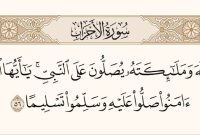 سُورَةُ الأَحْزَابِ
وَمَلَٰٓئِكَتَهُۥ يُصَلُّونَ عَلَى ٱلنَّبِىِّ ۚ يَٰٓأَيُّهَا
ءَامَنُوا۟ صَلُّوا۟ عَلَيْهِ وَسَلِّمُوا۟ تَسْلِيمًا ٥٦